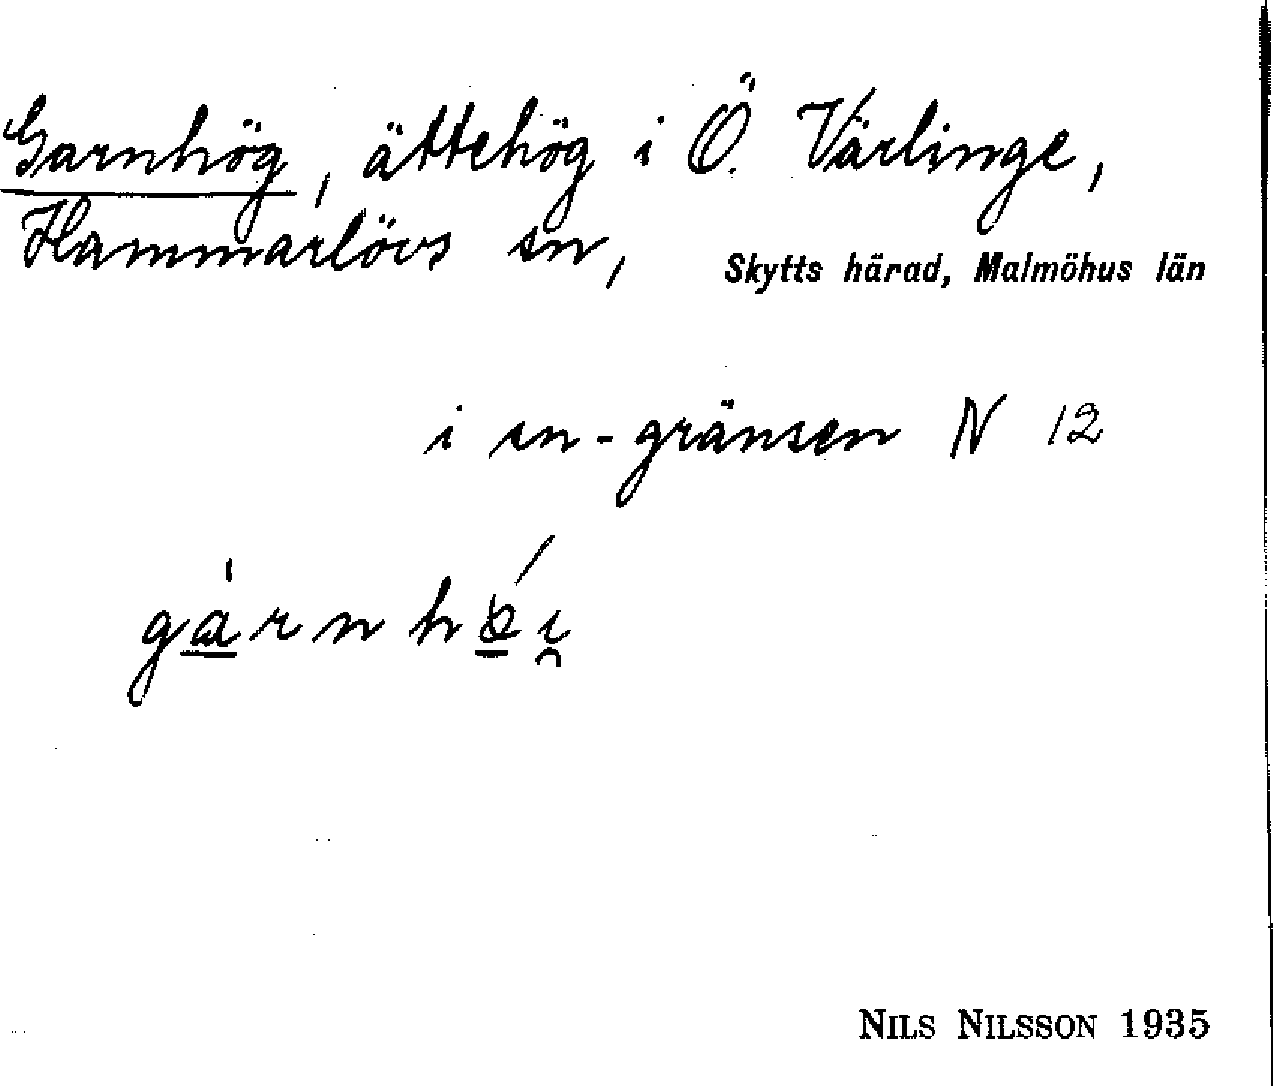 Garnhög, ättehög i Ö. Värlinge,
Hammarlövs sn, Skytts härad, Malmöhus län
i sn-gränsen N 12
NILS NILSSON 1935